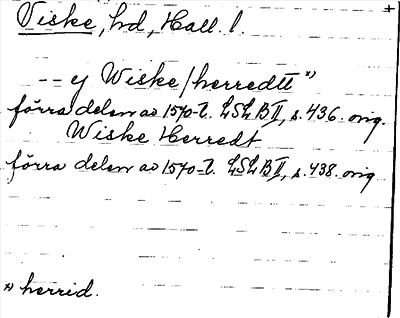 Viske, hd, Hall. l.
-- ej Wiske/herredtt x)
förra delen av 1570-t. LSLB II, s. 436. orig.
Wiske Herredt
förra delen av 1570-t. LSLB II, s. 438. orig
x) herrid.